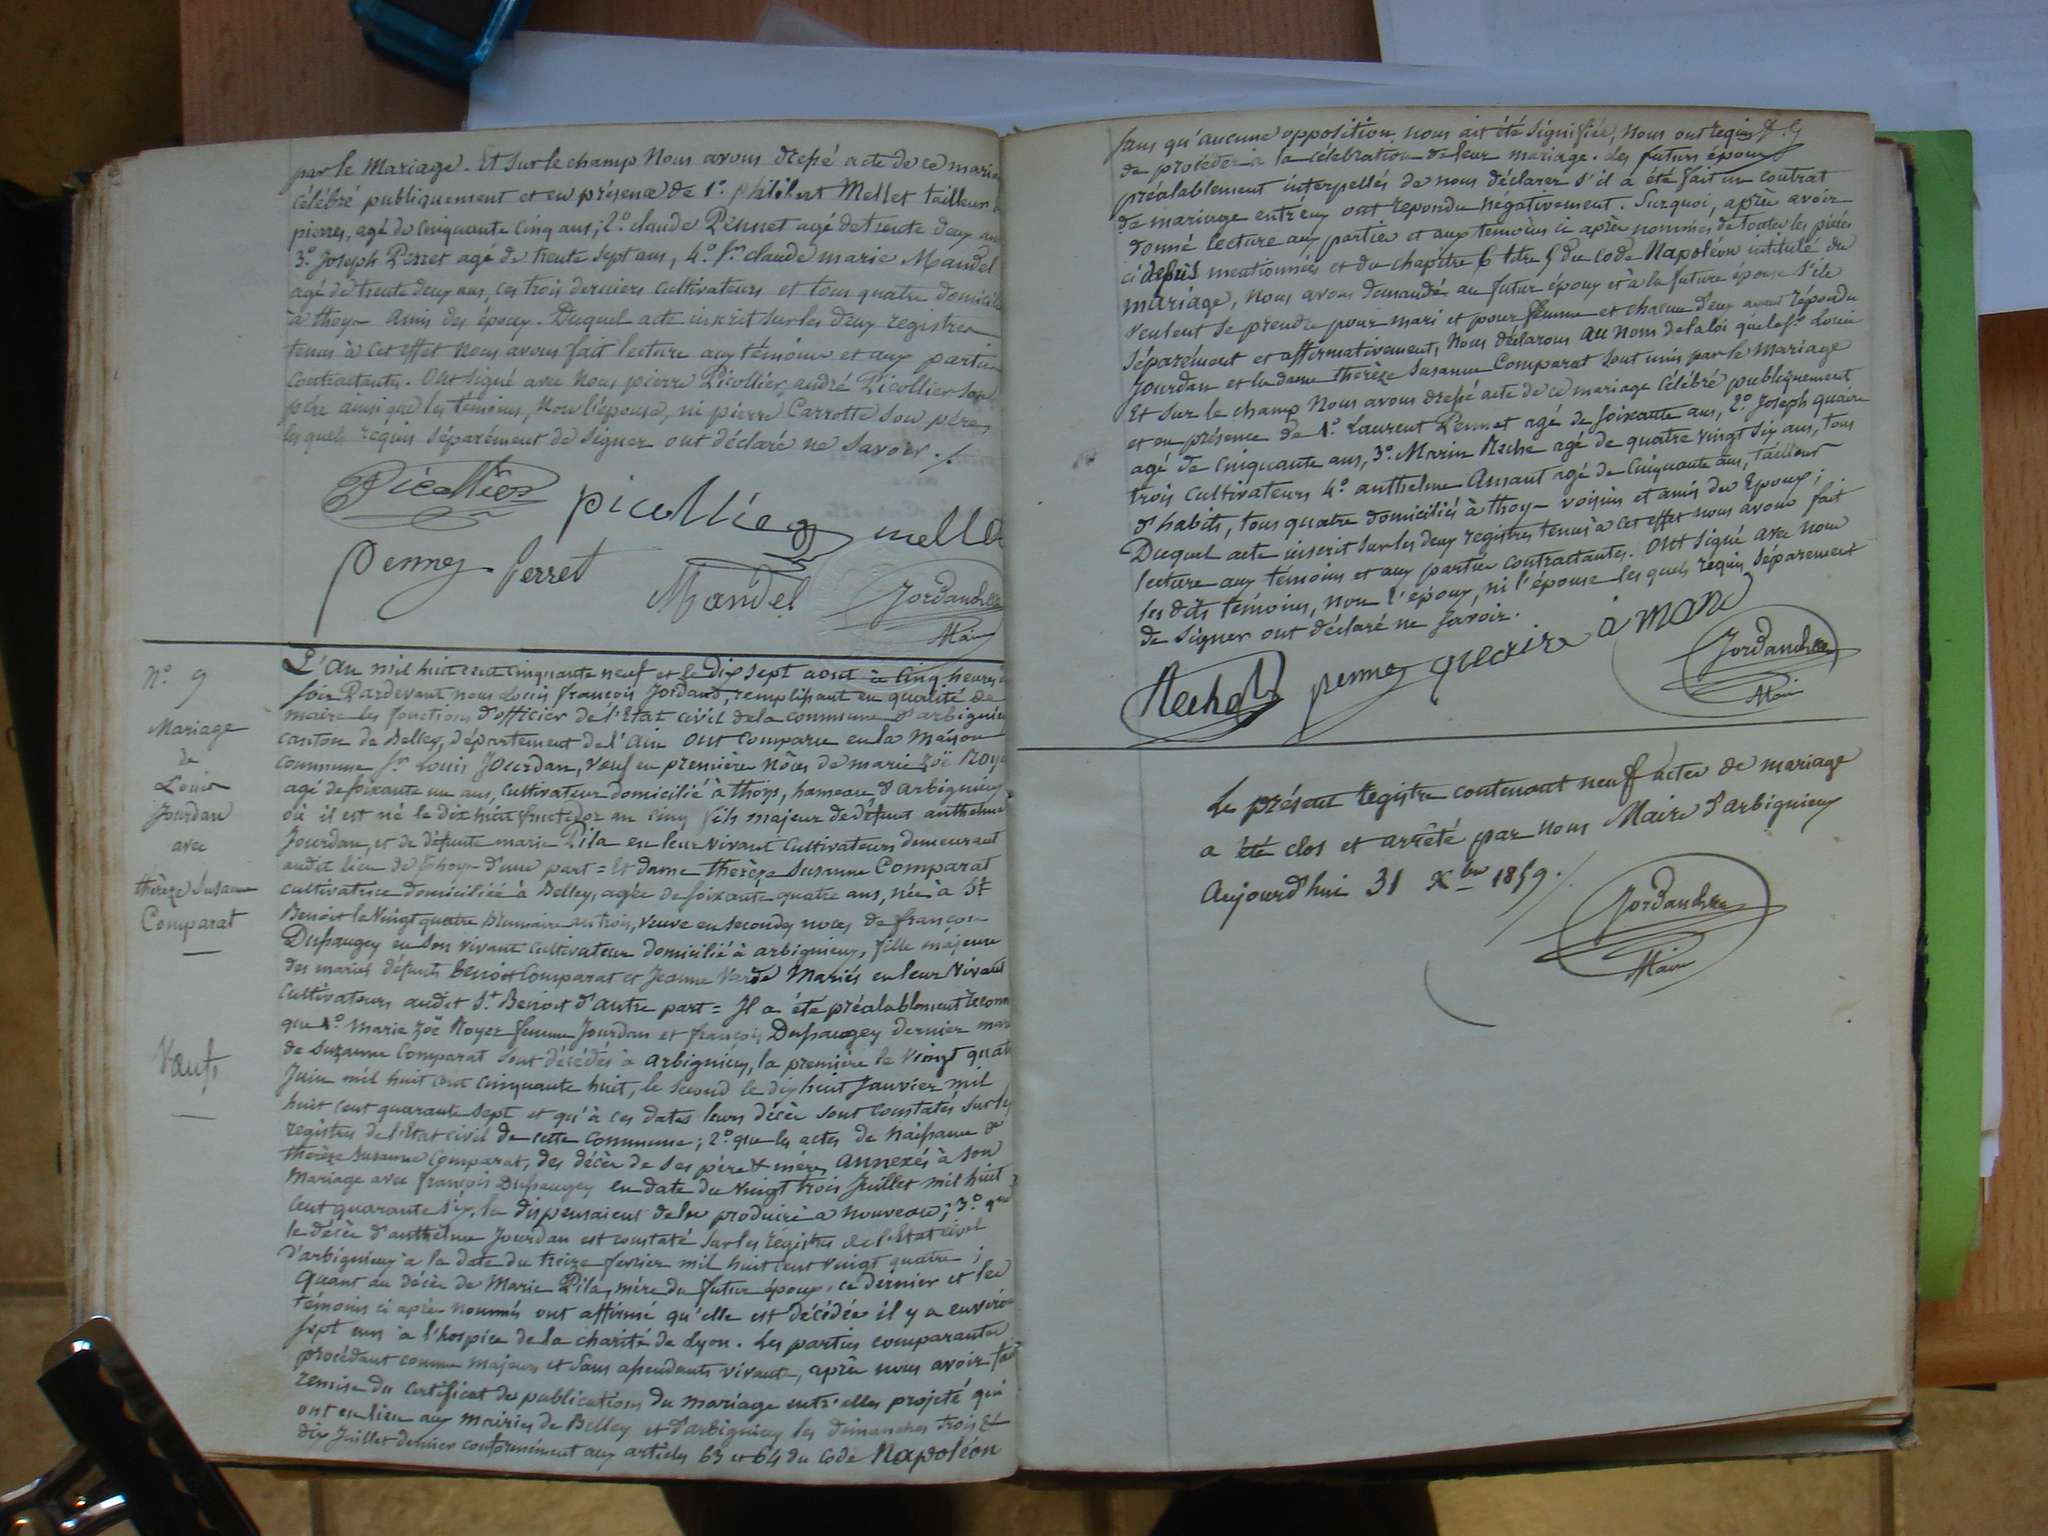 par le Mariage. Et sur le champ Nous avons dressé acte de ce maria
célébré publiquement et en présence de 1°. philibert Mellet tailleur
pierres, agé de Cinquante Cinq ans; 2°. claude Pennet agé de trente deux ans
3°. Joseph Perret agé de trente sept ans, 4°. Sr. claude marie Mandel
agé de trente deux ans, ces trois derniers cultivateurs et tous quatre domiciliés
à thoys amis des époux. Duquel acte inscrit sur les deux registres
tenus à cet effet nous avons fait lecture aux témoins et aux parties
contractantes. Ont signé avec nous pierre Picollier, andré Picollier son
père ainsi que les témoins, non l'épouse, ni pierre Carrotte son père,
les quels réquis séparément de signer ont déclaré ne savoir ./.
Picollier picollier mella
pennez perret Mandel Jordan
Maire
N°. 9
Mariage
de
Louis
Jourdan
avec
thérèze Susanne
Comparat
Vœufs
L'an mil huit cent cinquante neuf et le dix sept aout à Cinq heures
soir Pardevant nous Louis françois Jordand, remplissant en qualité de
maire les fonctions d'officier de l'Etat civil de la commune d'arbignieu
canton de Belley, département de l'ain ont comparu en la maison
commune Sr. Louis Jourdan, vœuf en premières nôces de marie Zoë Roye
agé de soixante un ans, cultivateur domicilié à thoys, hameau d'arbignieu
où il est né le dix huit fructidor an cinq fils majeur de défunt anthelme
Jourdan, et de défunte marie Pila en leur vivant cultivateurs demeurant
audit lieu de thoys d'une part = Et dame thérèze Susanne Comparat
cultivatrice domiciliée à Belley, agée de soixante quatre ans, née à St
Benoit le vingt quatre Brumaire an trois, veuve en secondes noces de françois
Dupaugey en son vivant cultivateur domicilié à arbignieu, fille majeure
des mariés défunts benoit Comparat et Jeanne Varde Mariés en leur vivant
cultivateurs audit St. Benoit d'autre part = Il a été préalablement reconn
que 1°. marie Zoë Royer femme Jourdan et françois Dupaugey dernier mari
de Suzanne Comparat sont décédés à arbignieu, la première le vingt quatre
Juin mil huit cent cinquante huit, le second le dix huit Janvier mil
huit cent quarante sept et qu'à ces dates leurs décès sont constatés sur les
registres de l'Etat civil de cette commune; 2°. que les actes de naissance de
thérèze Susanne Comparat, des décès de ses père & mère, annexés à son
Mariage avec françois Dupaugey en date du vingt trois Juillet mil huit
cent quarante six, la dispensaient de les produire à nouveau; 3°. que
le décès d'anthelme Jourdan est constaté sur les régistres de l'Etat civil
d'arbignieu à la date du treize février mil huit cent vingt quatre;
Quant au décès de Marie Pila, mère du futur époux, ce dernier et les
témoins ci après nommés ont affirmé qu'elle est décédée il y a environ
sept ans à l'hospice de la charité de Lyon. Les parties comparantes
procédant comme majeurs et sans ascendants vivants, après nous avoir fait
remise du certificat des publications du mariage entr'elles projeté qui
ont eu lieu aux mairies de Belley et d'arbignieu les dimanches trois &
dix Juillet dernier conformément aux articles 63 et 64 du Code Napoléon
sans qu'aucune opposition nous ait été signifiée, nous ont requis
de procéder à la célébration de leur mariage. Les futurs époux
préalablement interpellés de nous déclarer s'il a été fait un contrat
de mariage entr'eux ont repondu négativement. Surquoi, après avoir
donné lecture aux parties et aux temoins ci après nommés de toutes les pièces
ci dessus mentionnées et du chapitre 6 titre 5 du Code Napoléon intitulé du
mariage, nous avons demandé au futur époux et à la future épouse s'ils
veulent se prendre pour mari et pour femme et chacun d'eux ayant répondu
séparément et affirmativement, Nous déclarons au nom de la loi que le Sr. Louis
Jourdan et la dame thérèze Susanne Comparat sont unis par le Mariage
Et sur le champ Nous avons dressé acte de ce mariage célébré publiquement
et en présence de 1°. Laurent Pennet agé de soixante ans, 2°. Joseph quaire
agé de cinquante ans, 3°. Marin Reche agé de quatre vingt six ans, tous
trois cultivateurs 4°. anthelme amant agé de cinquante ans, tailleur
d'habits, tous quatre domiciliés à thoys voisins et amis des Epoux;
Duquel acte inscrit sur les deux registres tenus à cet effet nous avons fait
lecture aux témoins et aux parties contractantes. Ont signé avec nous
les dits témoins, non l'époux, ni l'épouse les quels requis séparément
de signer ont déclaré ne savoir.
pennez quaire amant Jordan
Maire
Le présent registre contenant neuf actes de mariage
a été clos et arrêté par nous Maire d'arbignieu
Aujourd'hui 31 Xbre 1859.
Jordan
Maire